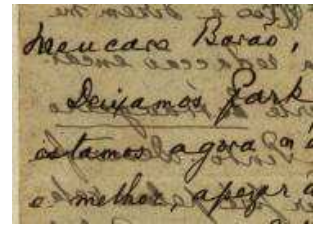 Meu caro Barão,
Deixamos Park
estamos agora
o melhor, apezar